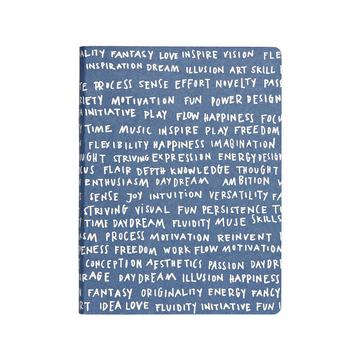 ALITY FANTASY LOVE INSPIRE VISION FLE
INSPIRATION DREAM ILLUSION ART SKILL
E PROCESS SENSE EFFORT NOVELTY PASS
RIETY MOTIVATION FUN POWER DESIGN
INITIATIVE PLAY FLOW HAPPINESS FOCU
Y TIME MUSIC INSPIRE PLAY FREEDOM
FLEXIBILITY HAPPINESS IMAGINATION
UGHT STRIVING EXPRESSION ENERGY DESIGN
CUS FLAIR DEPTH KNOWLEDGE THOUGHT
ENTHUSIASM DAYDREAM AMBITION V
SENSE JOY INTUITION VERSATILITY FA
STRIVING VISUAL FUN PERSISTENCE T
TIME DAYDREAM FLUIDITY MUSE SKILLS
ASM PROCESS MOTIVATION REINVENT
ENESS FREEDOM WORK FLOW MOTIVATION
CONCEPTION AESTHETICS PASSION DAYDR
RAGE DAYDREAM ILLUSION HAPPINESS
FANTASY ORIGINALITY ENERGY FANCY
RT IDEA LOVE FLUIDITY INITIATIVE FUN I